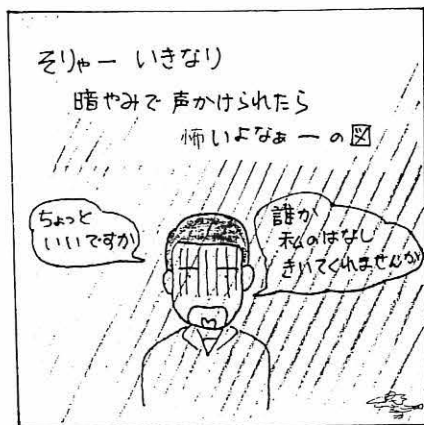 そりゃー いきなり
暗やみで 声かけられたら
怖いよなぁーの図
ちょっと
いいですか
誰か
私のはなし
きいてくれませんか